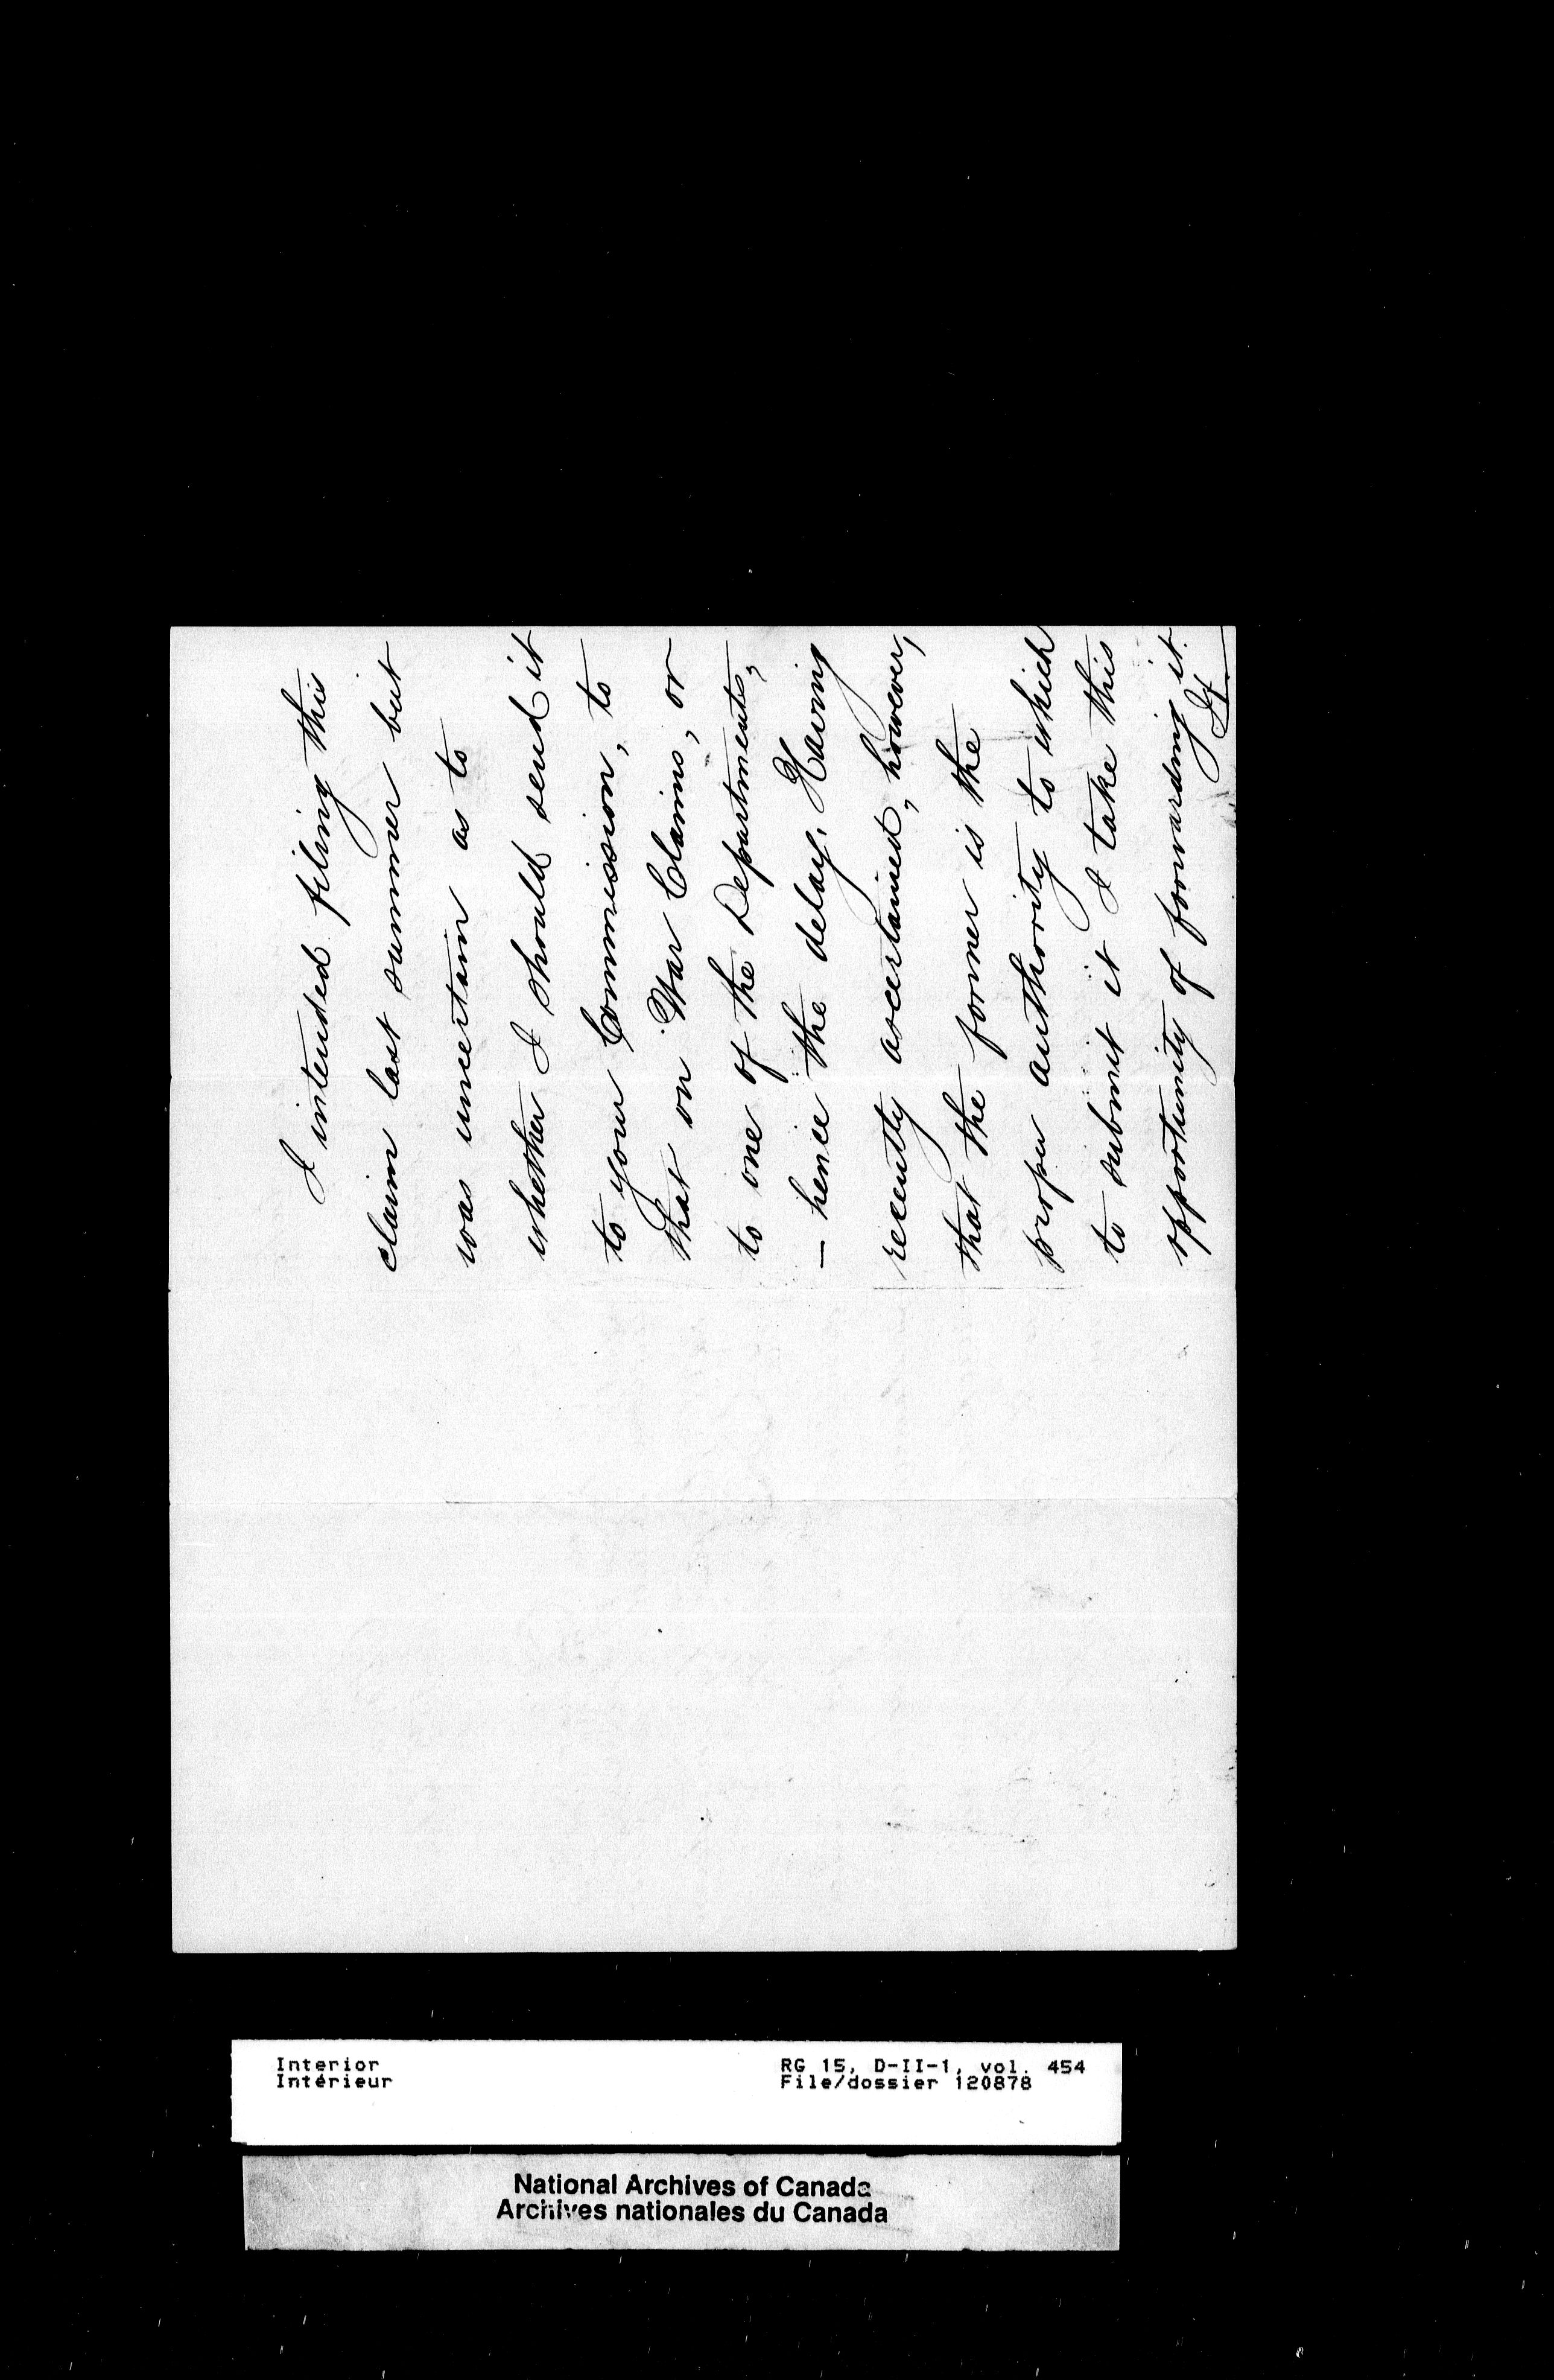 I intended filing this
claim last summer but
was uncertain as to
whether I should send it
to your Commission, to
that on War Claims, or
to one of the Departments,
– hence the delay. Having
recently ascertained, however,
that the former is the
proper authority to which
to submit it I take this
opportunity of forwarding it.
If
Interior
Intérieur
RG 15, D-II-1, vol. 454
File/dossier 120878
National Archives of Canada
Archives nationales du Canada